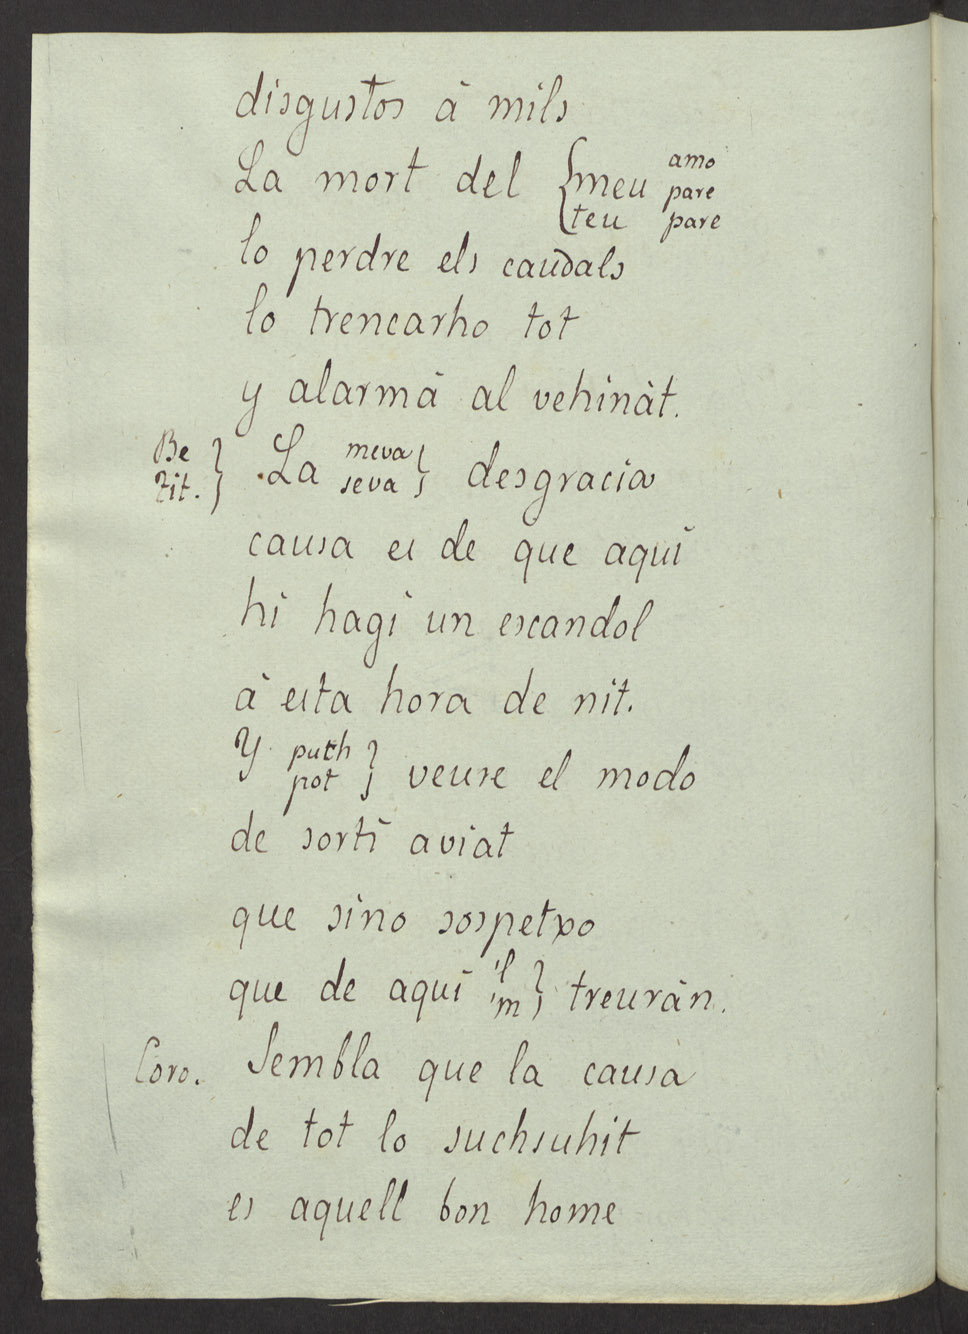 disgustos à mils
La mort del { meu amo
pare
teu pare
lo perdre els caudals
lo trencarho tot
y alarmà al vehinàt.
Be
Tit. } La meva
seva } desgracia
causa es de que aquí
hi hagi un escandol
à esta hora de nit.
Y puch
pot } veure el modo
de sortí aviat
que sino sospetxo
que de aquí 'l
'm } treuràn.
Coro. Sembla que la causa
de tot lo suchsuhit
es aquell bon home